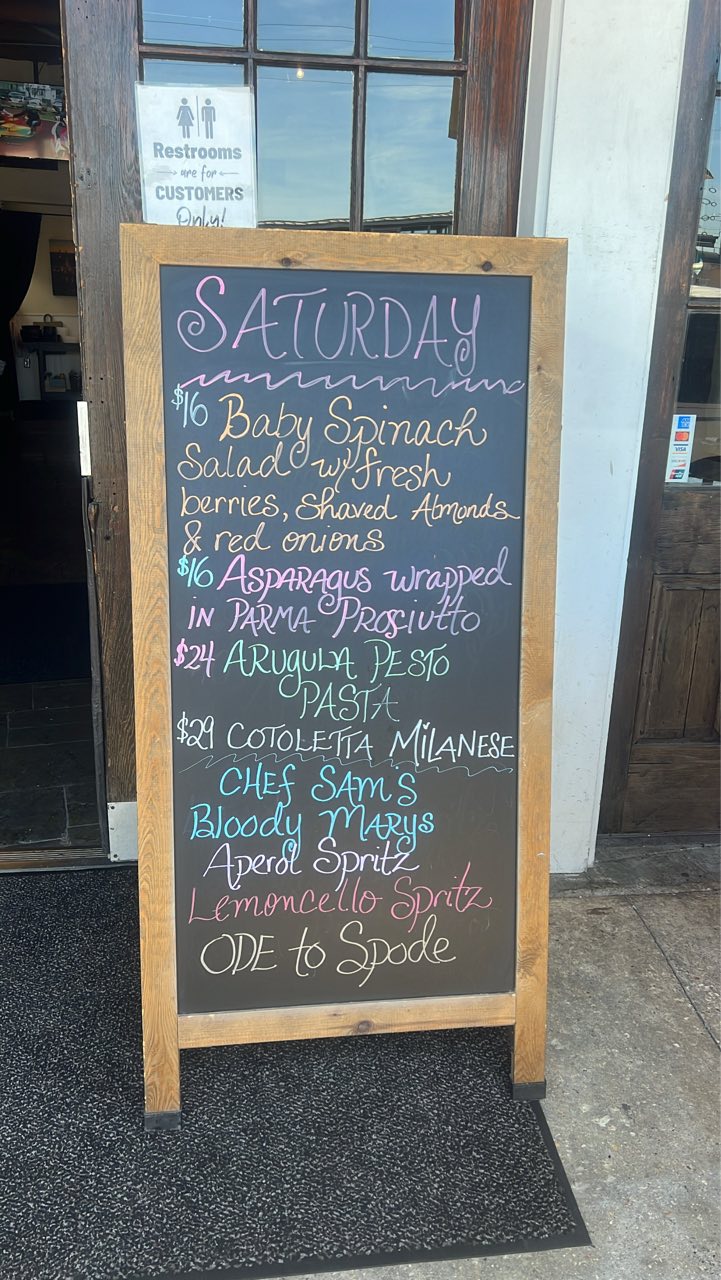 Restrooms
are for
CUSTOMERS
Only!
SATURDAY
$16 Baby Spinach
Salad w/ fresh
berries, Shaved Almonds
& red onions
$16 Asparagus wrapped
in Parma Prosciutto
$24 Arugula Pesto
Pasta
$29 Cotoletta Milanese
Chef Sam's
Bloody Marys
Aperol Spritz
Lemoncello Spritz
ODE to Spode
VISA